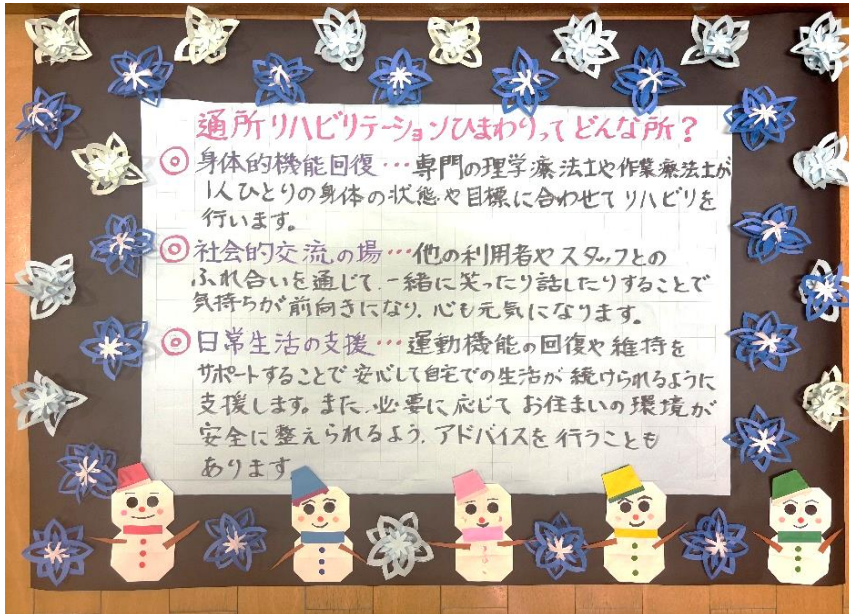 通所リハビリテーションひまわりってどんな所？
◎ 身体的機能回復…専門の理学療法士や作業療法士が
1人ひとりの身体の状態や目標に合わせてリハビリを
行います。
◎ 社会的交流の場…他の利用者やスタッフとの
ふれ合いを通じて、一緒に笑ったり話したりすることで
気持ちが前向きになり、心も元気になります。
◎ 日常生活の支援…運動機能の回復や維持を
サポートすることで安心して自宅での生活が続けられるように
支援します。また、必要に応じてお住まいの環境が
安全に整えられるよう、アドバイスを行うことも
あります